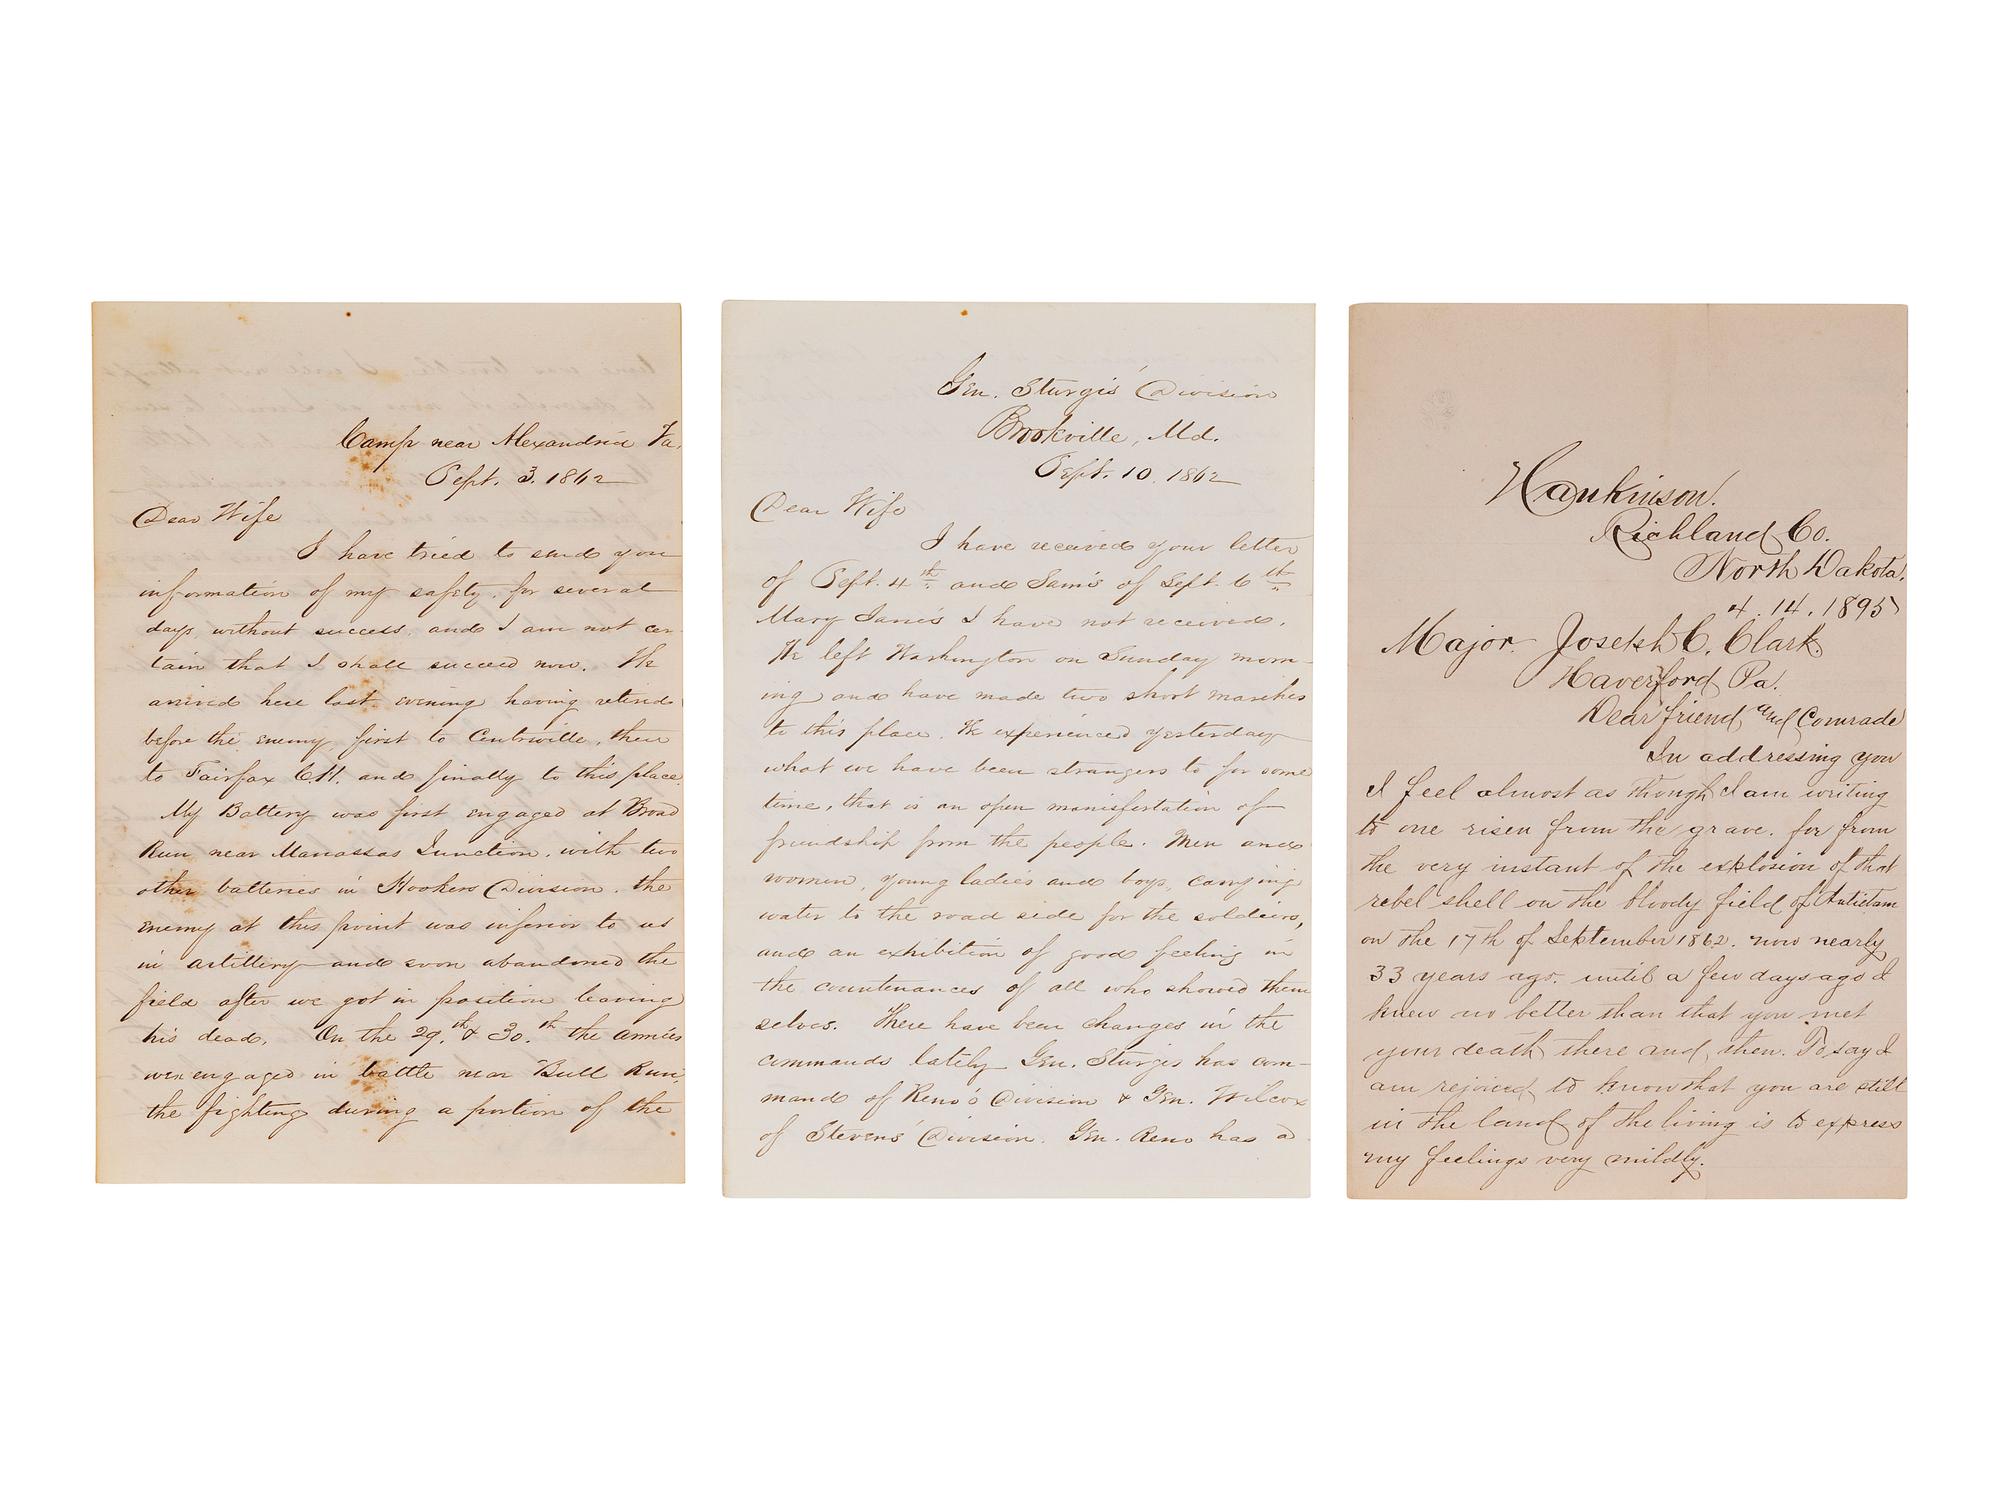 Camp near Alexandria Va.
Sept. 3. 1862
Dear Wife
I have tried to send you
information of my safety, for several
days, without success, and I am not cer-
tain that I shall succeed now. We
arrived here last evening having retired
before the enemy, first to Centreville, then
to Fairfax C.H. and finally to this place.
My Battery was first engaged at Broad
Run near Manassas Junction, with two
other batteries in Hookers Division. the
enemy at this point was inferior to us
in artillery and soon abandoned the
field after we got in position leaving
his dead. On the 29.th & 30.th the armies
were engaged in battle near Bull Run,
the fighting during a portion of the
Gen. Sturgis' Division
Brookville, Md.
Sept. 10. 1862
Dear Wife
I have received your letter
of Sept. 4th and Sam's of Sept. 6th
Mary Jane's I have not received.
We left Washington on Sunday morn-
ing and have made two short marches
to this place. We experienced yesterday
what we have been strangers to for some
time, that is an open manifestation of
friendship from the people. Men and
women, young ladies and boys, carrying
water to the road side for the soldiers,
and an exhibition of good feeling in
the countenances of all who showed them
selves. There have been changes in the
commands lately Gen. Sturgis has com-
mand of Reno's Division & Gen. Wilcox
of Stevens' Division. Gen. Reno has a
Hankinson.
Richland Co.
North Dakota.
4. 14. 1895
Major Joseph C. Clark
Haverford Pa.
Dear friend and Comrade
In addressing you
I feel almost as though I am writing
to one risen from the grave. for from
the very instant of the explosion of that
rebel shell on the bloody field of Antietam
on the 17th of September 1862. now nearly
33 years ago. until a few days ago I
knew no better than that you met
your death there and then. To say I
am rejoiced to know that you are still
in the land of the living is to express
my feelings very mildly.